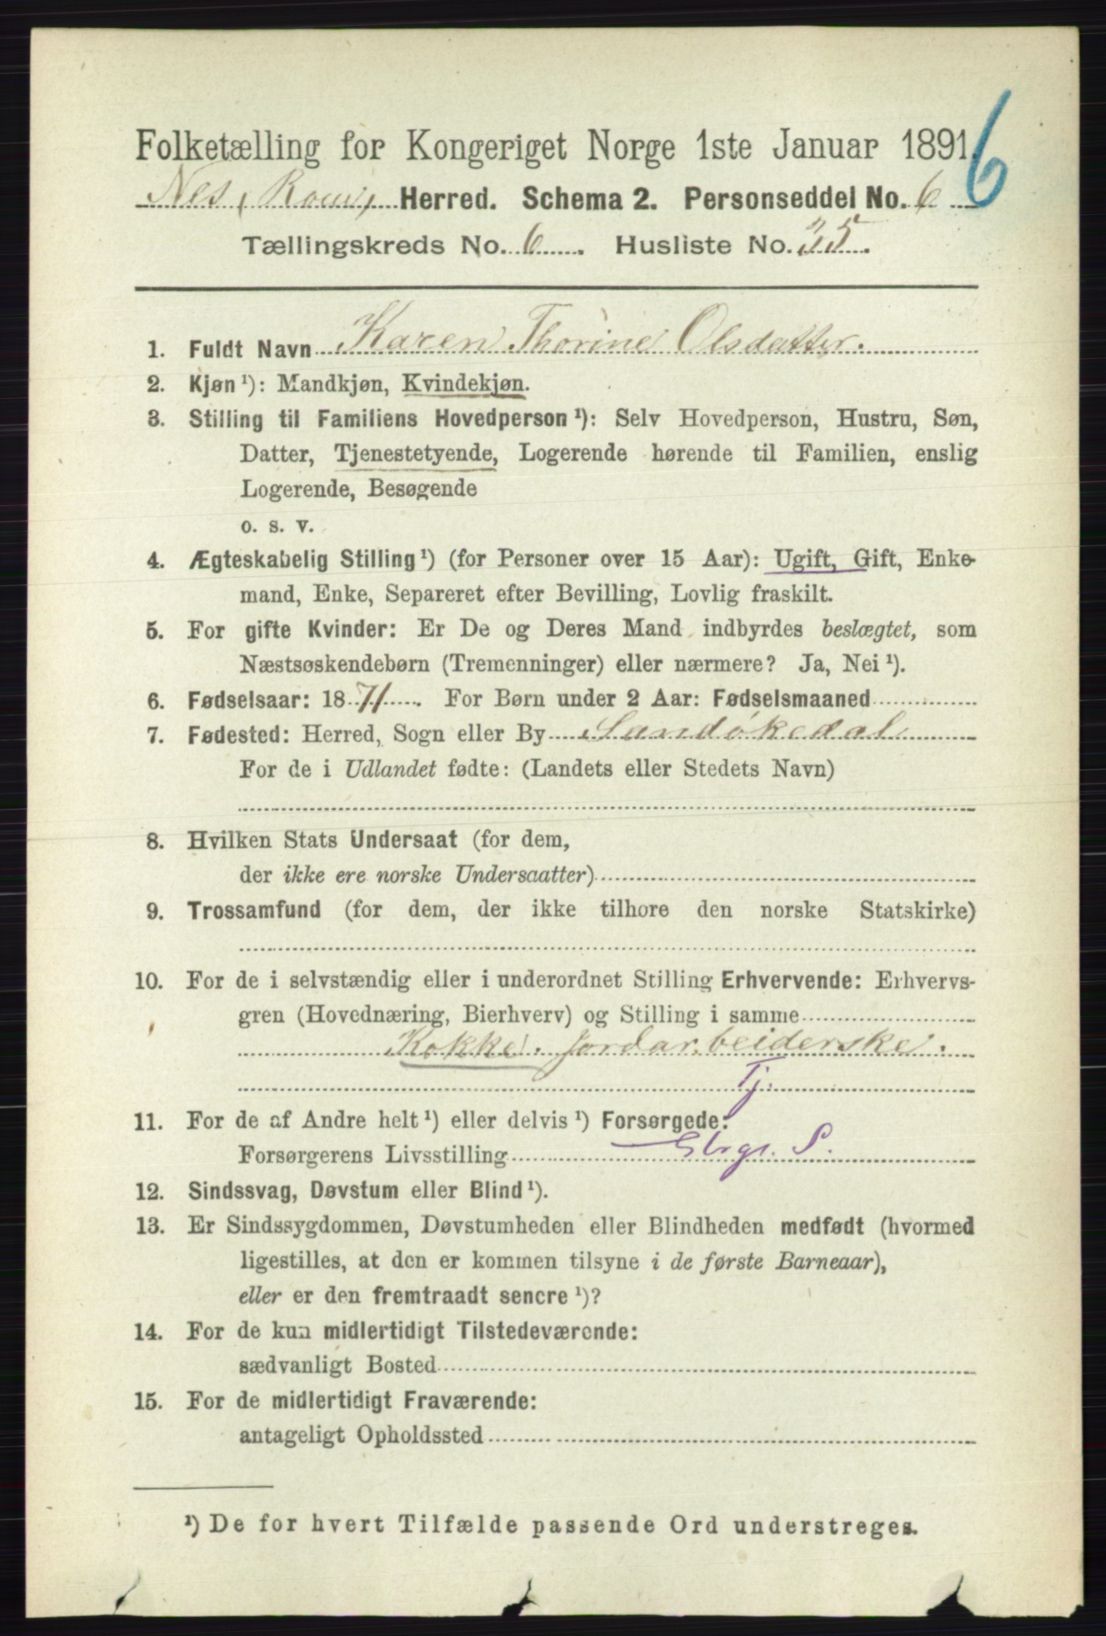 Folketælling for Kongeriget Norge 1ste Januar 1891.
6
Nes, Herred. Schema 2. Personseddel No. 6
Tællingskreds No. 6. Husliste No. 35.
1. Fuldt Navn Karen Thorine Olsdatter.
2. Kjøn ¹): Mandkjøn, Kvindekjøn.
3. Stilling til Familiens Hovedperson ¹): Selv Hovedperson, Hustru, Søn,
Datter, Tjenestetyende, Logerende hørende til Familien, enslig
Logerende, Besøgende
o. s. v.
4. Ægteskabelig Stilling ¹) (for Personer over 15 Aar): Ugift, Gift, Enke-
mand, Enke, Separeret efter Bevilling, Lovlig fraskilt.
5. For gifte Kvinder: Er De og Deres Mand indbyrdes beslægtet, som
Næstsøskendebørn (Tremenninger) eller nærmere? Ja, Nei ¹).
6. Fødselsaar: 1871. For Børn under 2 Aar: Fødselsmaaned
7. Fødested: Herred, Sogn eller By Sandøkedal
For de i Udlandet fødte: (Landets eller Stedets Navn)
8. Hvilken Stats Undersaat (for dem,
der ikke ere norske Undersaatter)
9. Trossamfund (for dem, der ikke tilhøre den norske Statskirke)
10. For de i selvstændig eller i underordnet Stilling Erhvervende: Erhvervs-
gren (Hovednæring, Bierhverv) og Stilling i samme
Kokke. Jordarbeiderske.
Tj.
11. For de af Andre helt ¹) eller delvis ¹) Forsørgede:
Forsørgerens Livsstilling S.
12. Sindssvag, Døvstum eller Blind ¹).
13. Er Sindssygdommen, Døvstumheden eller Blindheden medfødt (hvormed
ligestilles, at den er kommen tilsyne i de første Barneaar),
eller er den fremtraadt senere ¹)?
14. For de kun midlertidigt Tilstedeværende:
sædvanligt Bosted
15. For de midlertidigt Fraværende:
antageligt Opholdssted
¹) De for hvert Tilfælde passende Ord understreges.